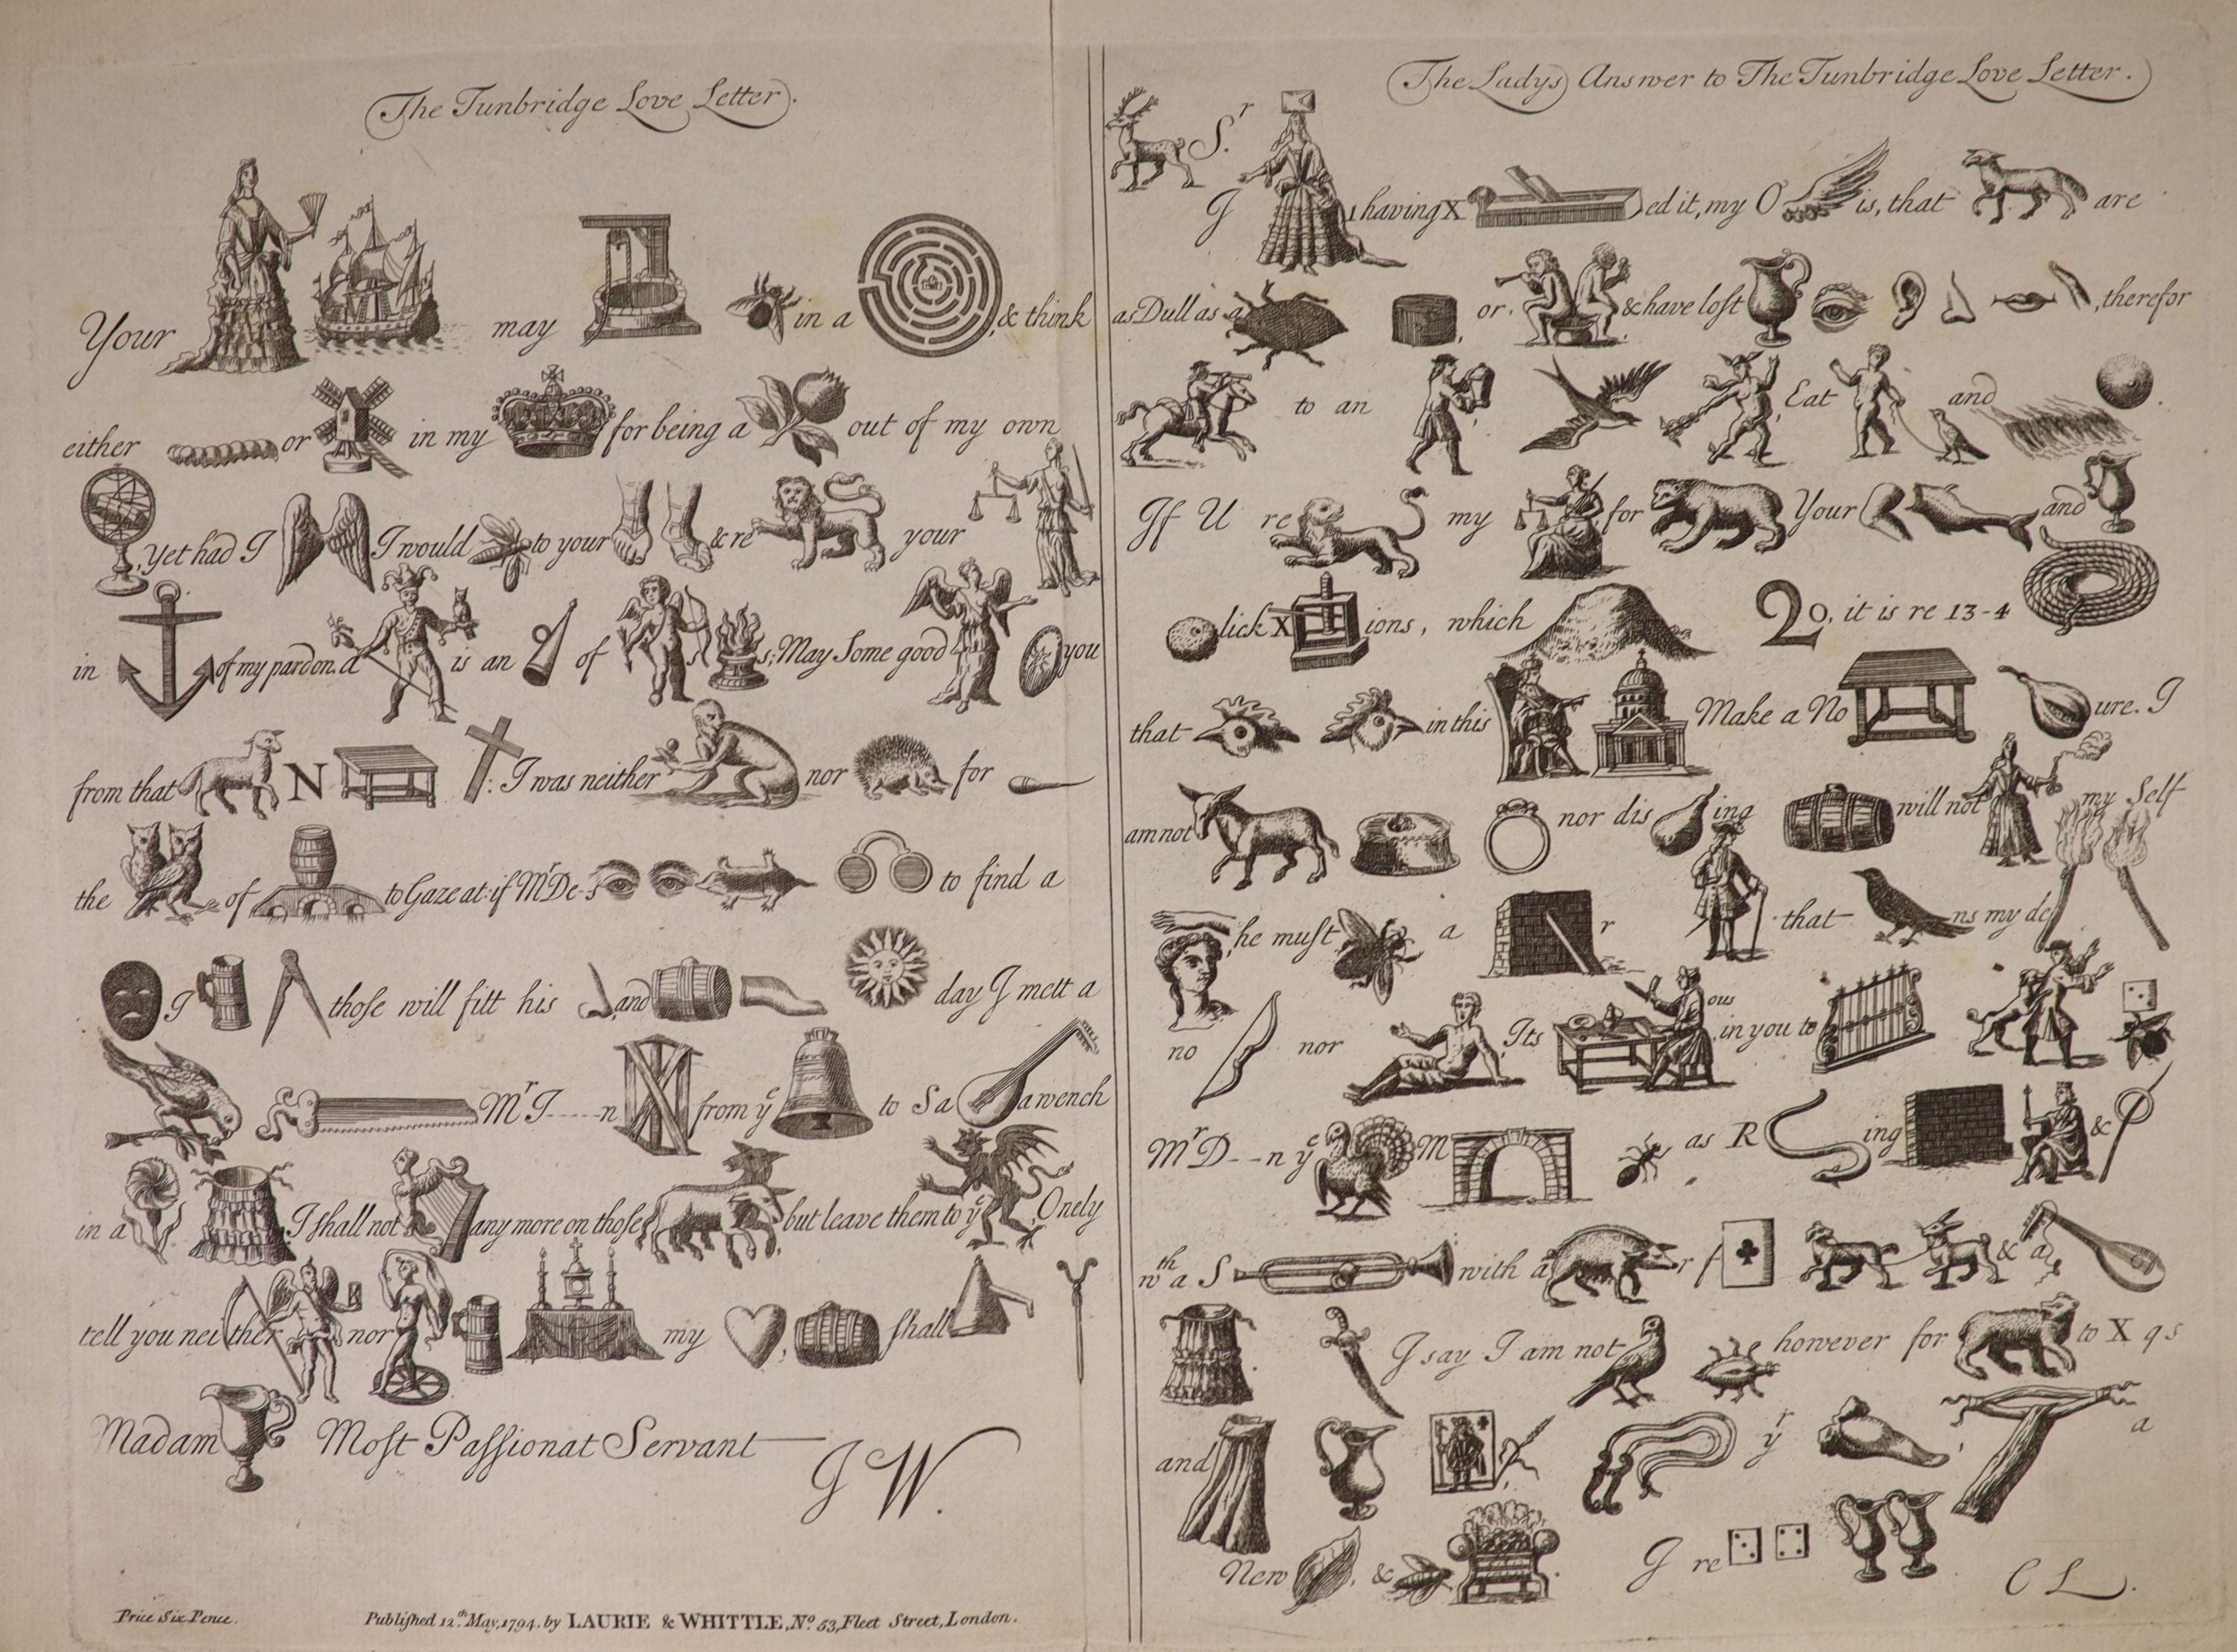 The Tunbridge Love Letter.
Your may in a , & think
either or in my for being a out of my own
, yet had I I would to your & re your
in of my pardon. a is an of s s, May Some good you
from that N : I was neither nor for
the of to Gaze at: if Mr De-s to find a
I those will fitt his and day I mett a
Mr J-----n from ye to Sa a wench
in a . I shall not any more on those but leave them to ye . Onely
tell you neither nor my , shall
Madam Most Passionat Servant
J W.
Price Six Pence.
Published 12th May, 1794. by LAURIE & WHITTLE, No. 53, Fleet Street, London.
The Ladys Answer to The Tunbridge Love Letter.
Sr.
I having X ed it, my O is, that are
as Dull as a , or & have lost , therefor
to an Eat and .
If U re my for Your and
lick X ions, which 20, it is re 13-4
that in this Make a No ure. I
am not nor dis ing will not my Self
, he must a r that ns my de
no nor , Its ous in you to
Mr D---n ye M as R ing &
wth a S with a r f & a
. I say I am not however for to X q s
and yr , a
New , & .
I re
C L.